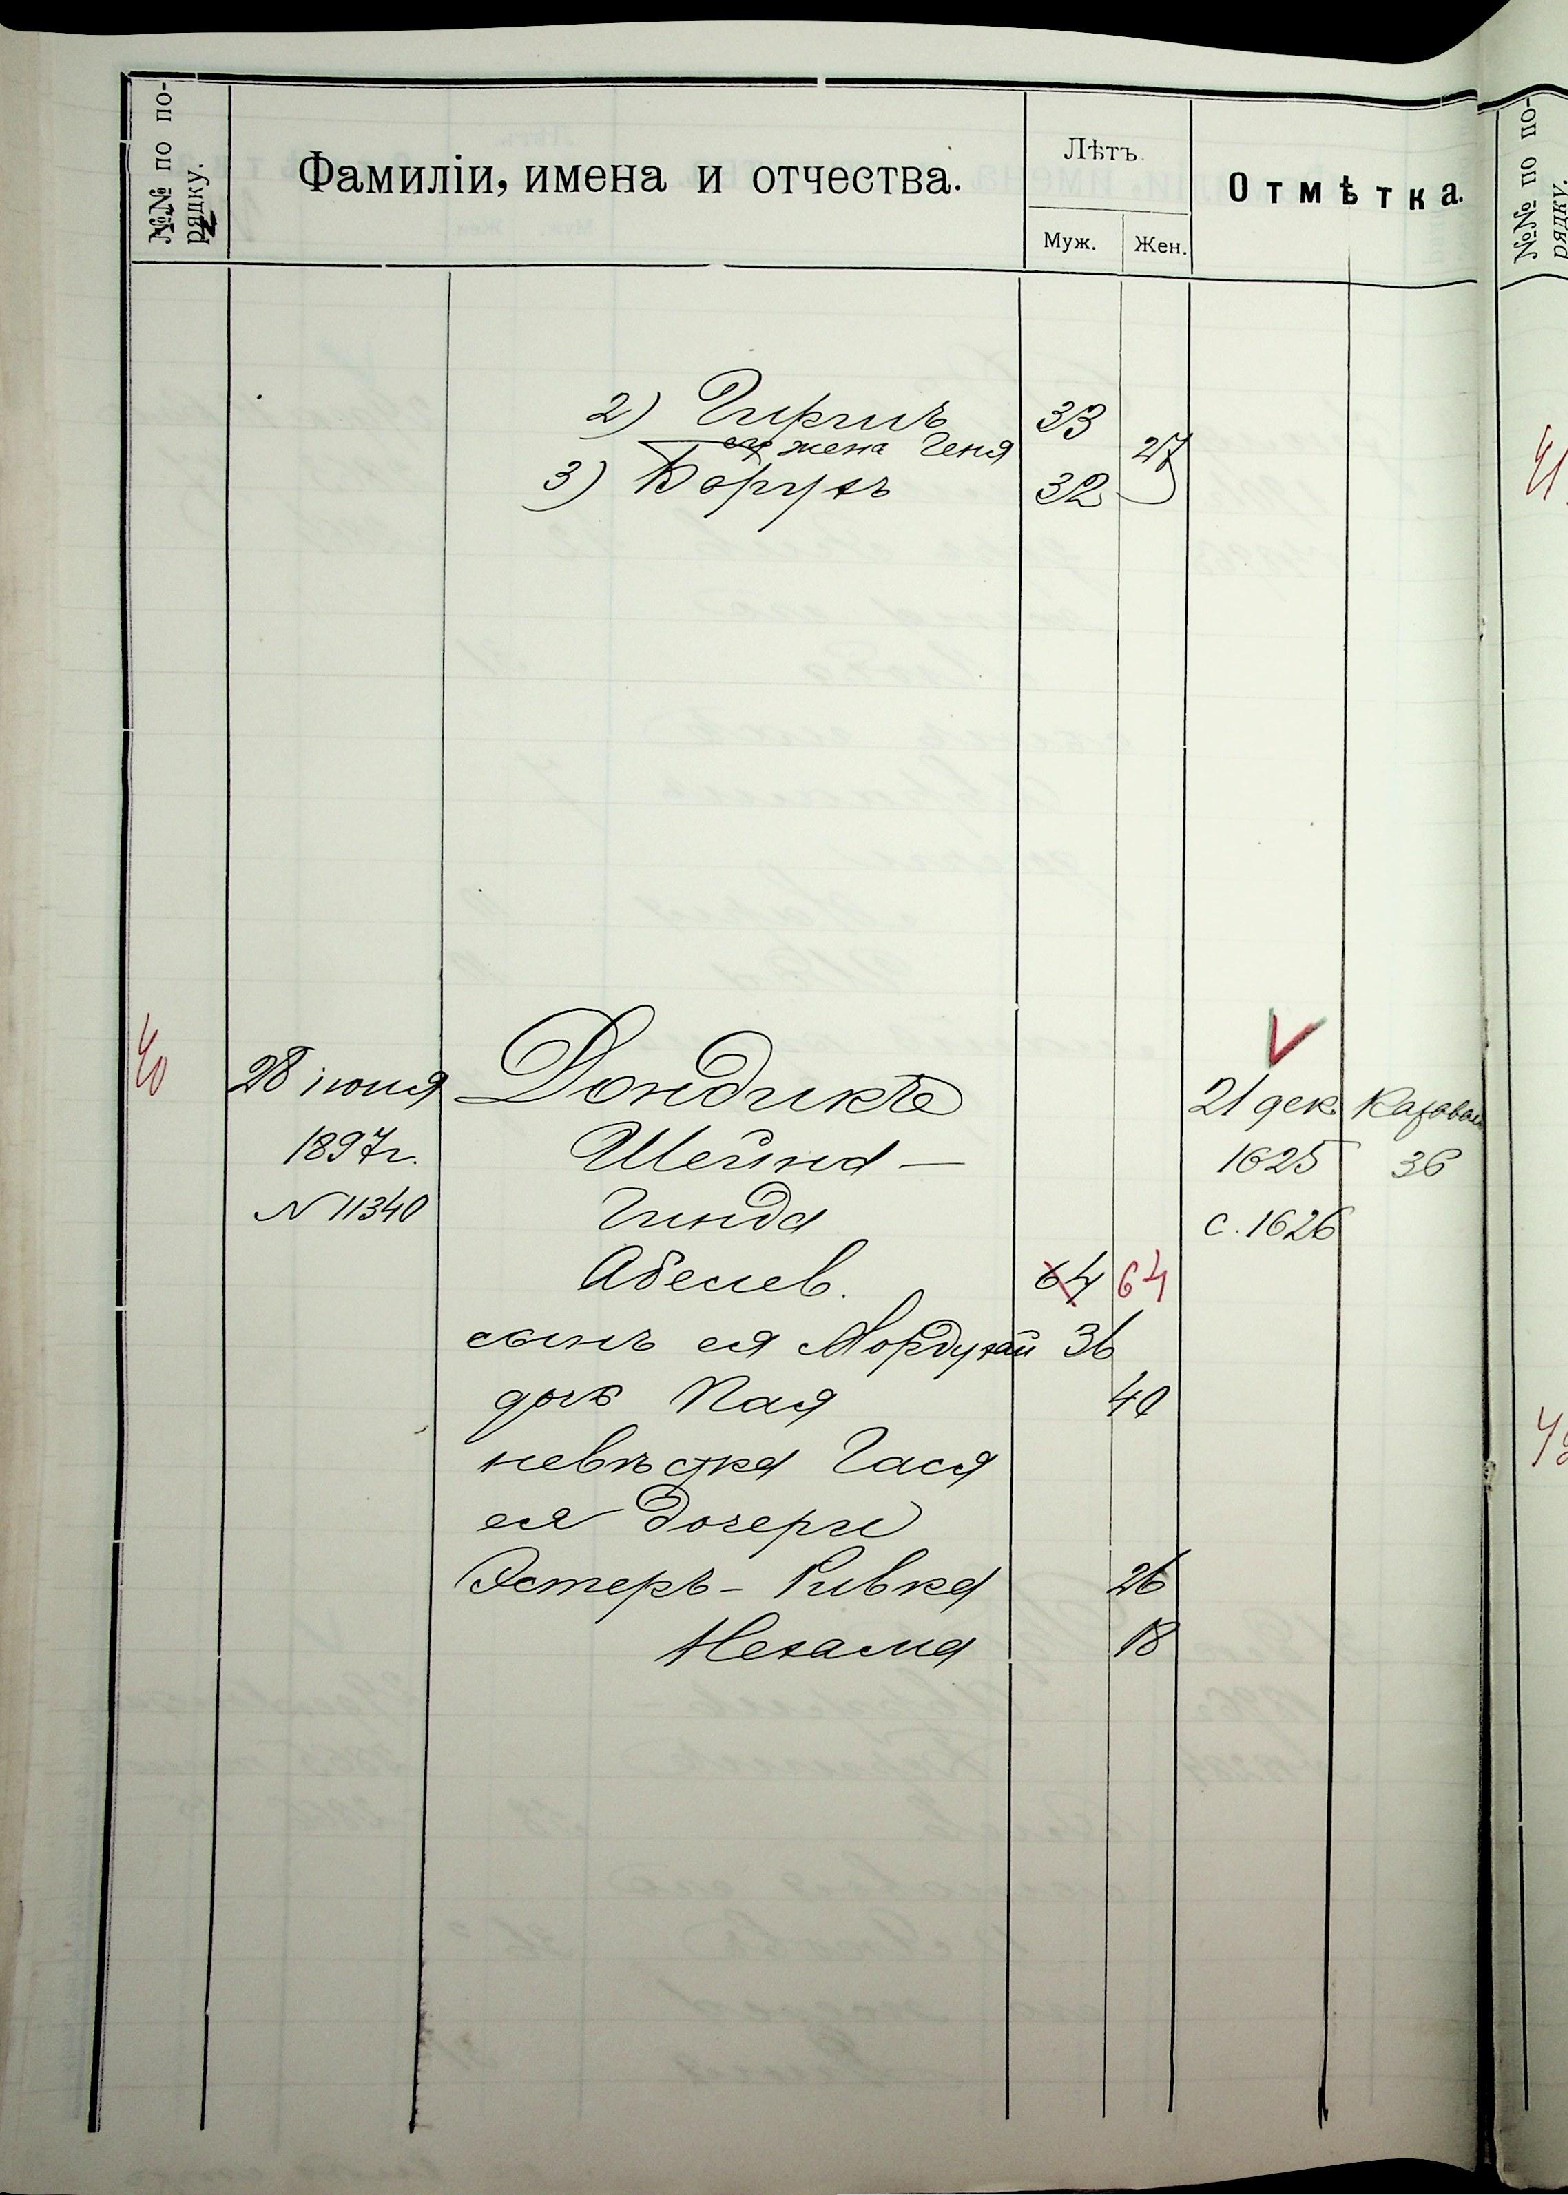 №№ по по-
рядку.
Фамиліи, имена и отчества.
Лѣтъ.
Муж.
Жен.
Отмѣтка.
№№ по по-
рядку.
2) Гиршъ 33
его жена Геня 27
3) Борухъ 32
41
40
28 іюня
1897 г.
N 11340
Дондикъ
Шейна —
Гинда
Абелев. 64 64
сынъ ея Мордухай 36
дочь Пая 40
невѣстка Гася
ея дочери
Эстеръ - Ривка 26
Нехама 18
21 дек.
1625 36
с. 1626